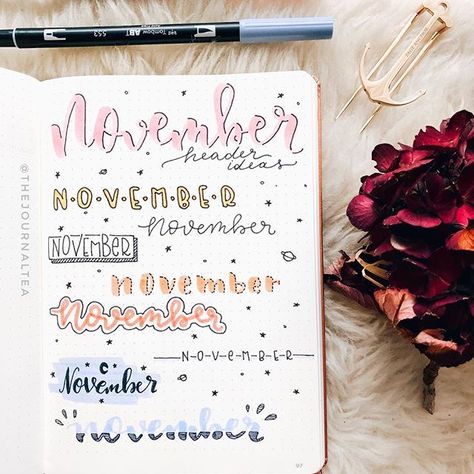 THE TOMBOW ABT 553
November
header
ideas
N·O·V·E·M·B·E·R
November
NOVEMBER
november
november
N-O-V-E-M-B-E-R
November
november
97
@THEJOURNALTEA